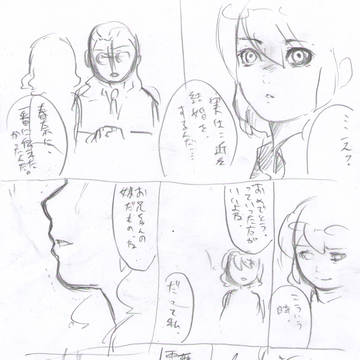 …えっ?
実は、近々
結婚を、
するんだ…
春奈に、
一番に伝え
たかったんだ。
こういう
時、
おめでとう
っていった方が
いい?
だって私、
お兄ちゃんの
妹だもの、ね